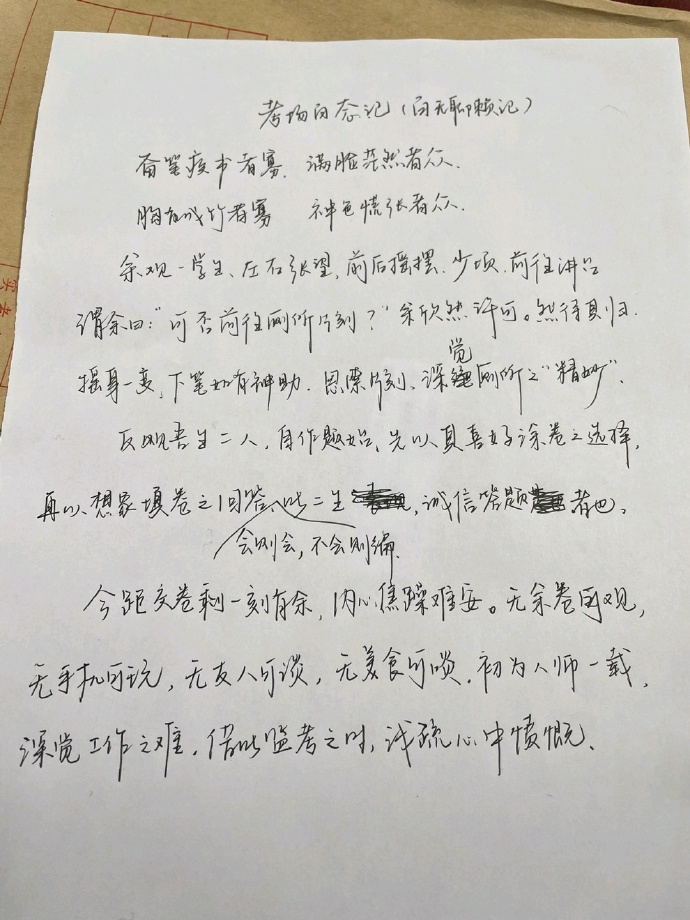 考场百态记(百无聊赖记)
奋笔疾书者寡、满脸茫然者众.
胸有成竹者寡 神色慌张者众.
余观一学生、左右张望,前后摇摆.少顷.前往讲台
谓余曰:"可否前往厕所片刻?"余欣然许可。然待其归.
摇身一变,下笔如有神助.思索片刻、深觉厕所之"精妙".
反观吾生二人,自作题始、先以其喜好涂卷之选择,
再以想象填卷之回答、此二生,诚信答题者也。
会则会,不会则编.
今距交卷剩一刻有余,内心焦躁难安。无余卷可观,
无手机可玩,无友人可谈,无美食可啖.初为人师一载,
深觉工作之难.借此监考之时,浅疏心中愤慨.